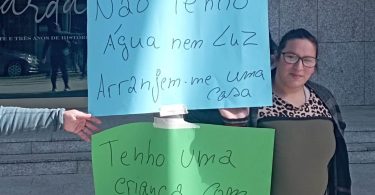 arda
TE E TRÊS ANOS DE HISTÓRI
Não Tenho
Água nem Luz
Arranjem-me uma
casa
Tenho uma
criança com